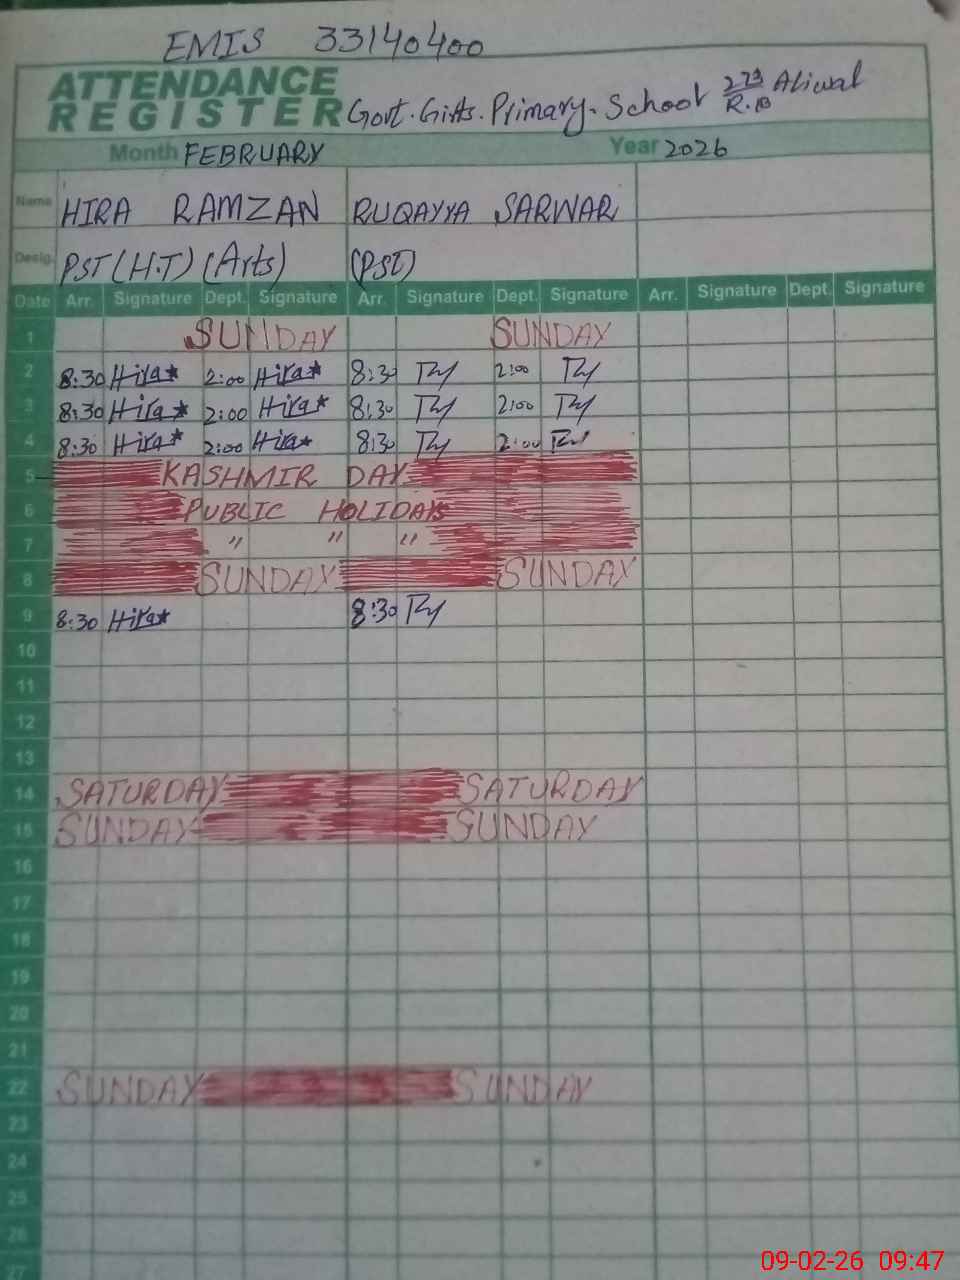 EMIS 33140400
ATTENDANCE
REGISTER Govt. Girls. Primary. School 273 R.B Aliwal
Month FEBRUARY Year 2026
Name HIRA RAMZAN RUQAYYA SARWAR
Desig. PST (H.T) (Arts) (PST)
Date Arr. Signature Dept. Signature Arr. Signature Dept. Signature Arr. Signature Dept. Signature
1 SUNDAY SUNDAY
2 8:30 Hira 2:00 Hira 8:30 2:00
3 8:30 Hira 2:00 Hira 8:30 2:00
4 8:30 Hira 2:00 Hira 8:30 2:00
5 KASHMIR DAY
6 PUBLIC HOLIDAYS
7 " " "
8 SUNDAY SUNDAY
9 8:30 Hira 8:30
10
11
12
13
14 SATURDAY SATURDAY
15 SUNDAY SUNDAY
16
17
18
19
20
21
22 SUNDAY SUNDAY
23
24
25
26
27
09-02-26 09:47